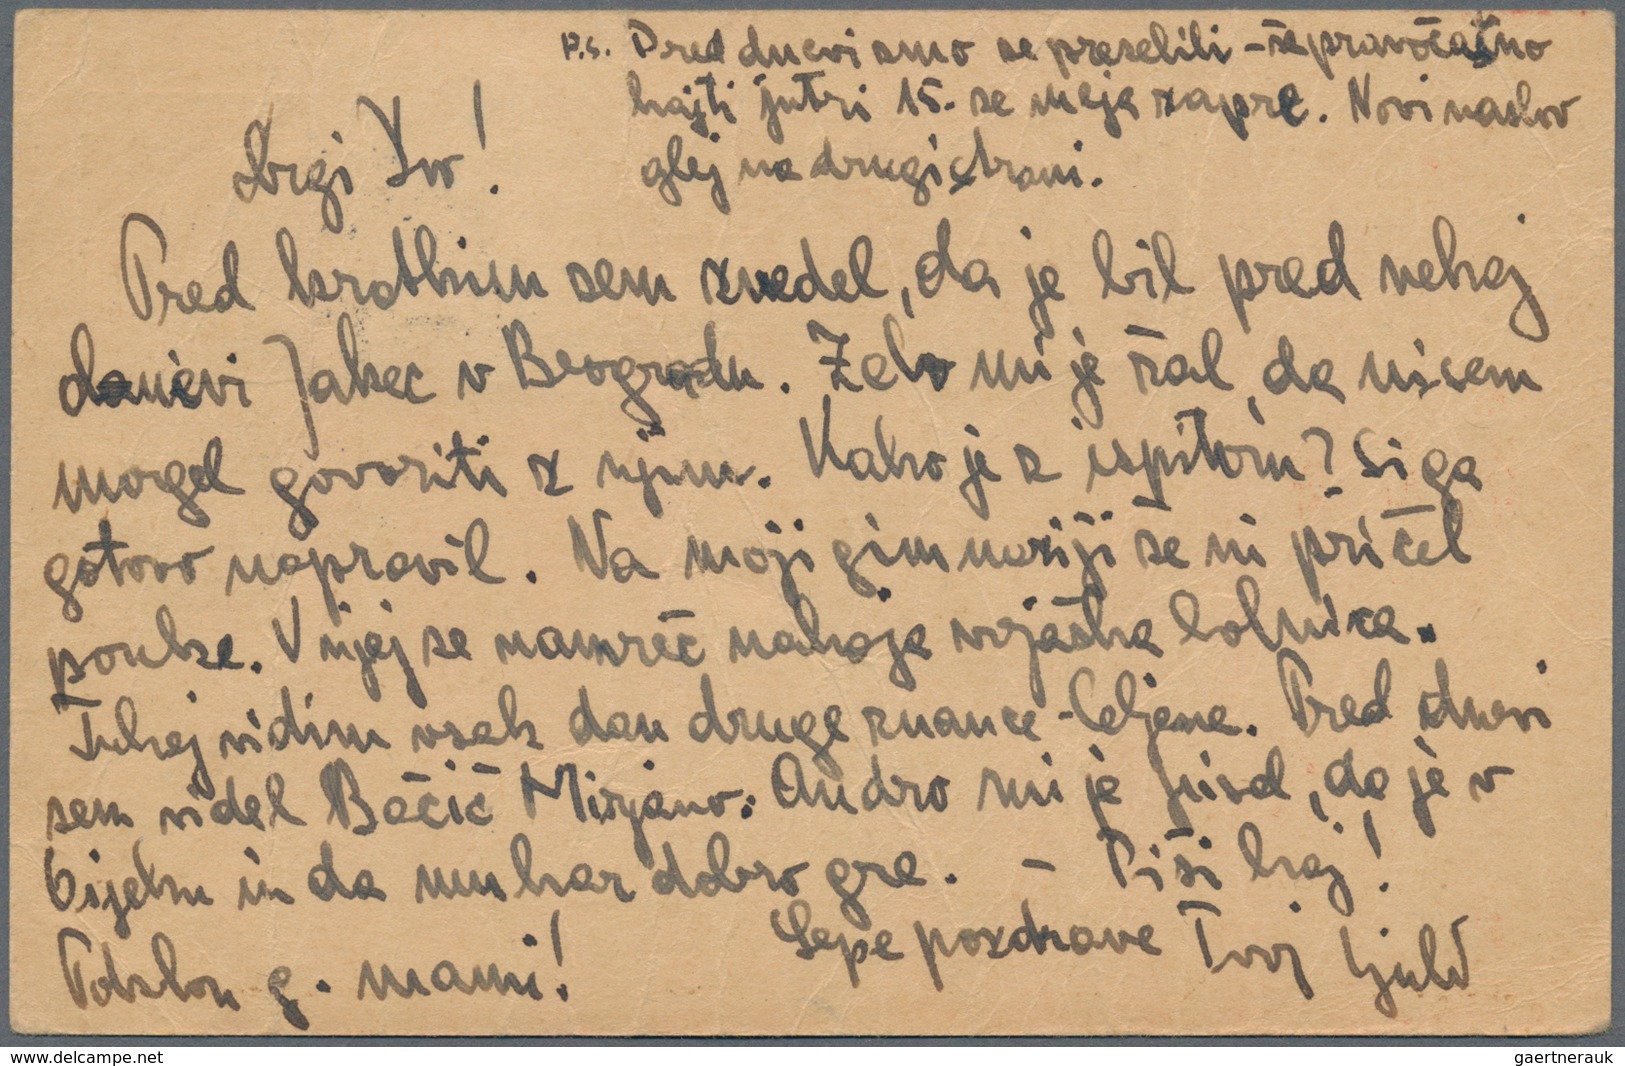 P.s. Pred dnevi smo se preselili – še pravočašno
kajti jutri 15. se meja zapre. Novi naslov
glej na drugi strani.
Dragi Ivo!
Pred kratkim sem zvedel, da je bil pred nekaj
dnevi Jakec v Beogradu. Zelo mi je žal, da nisem
mogel govoriti z njim. Kako je z ispitom? Si ga
gotovo napravil. Na moji gimnaziji še ni pričel
pouk. V njej se namreč nahaja vojaška bolnica.
Tukaj vidim vsak dan druge znance – Celjane. Pred dnevi
sem videl Bačić Mirjano. Andro mi je pisal, da je v
Bijelju in da mu kar dobro gre. – Piši kaj!
Lepe pozdrave Tvoj
Poklon g. mami!
delcampe.net
gaertnerauk